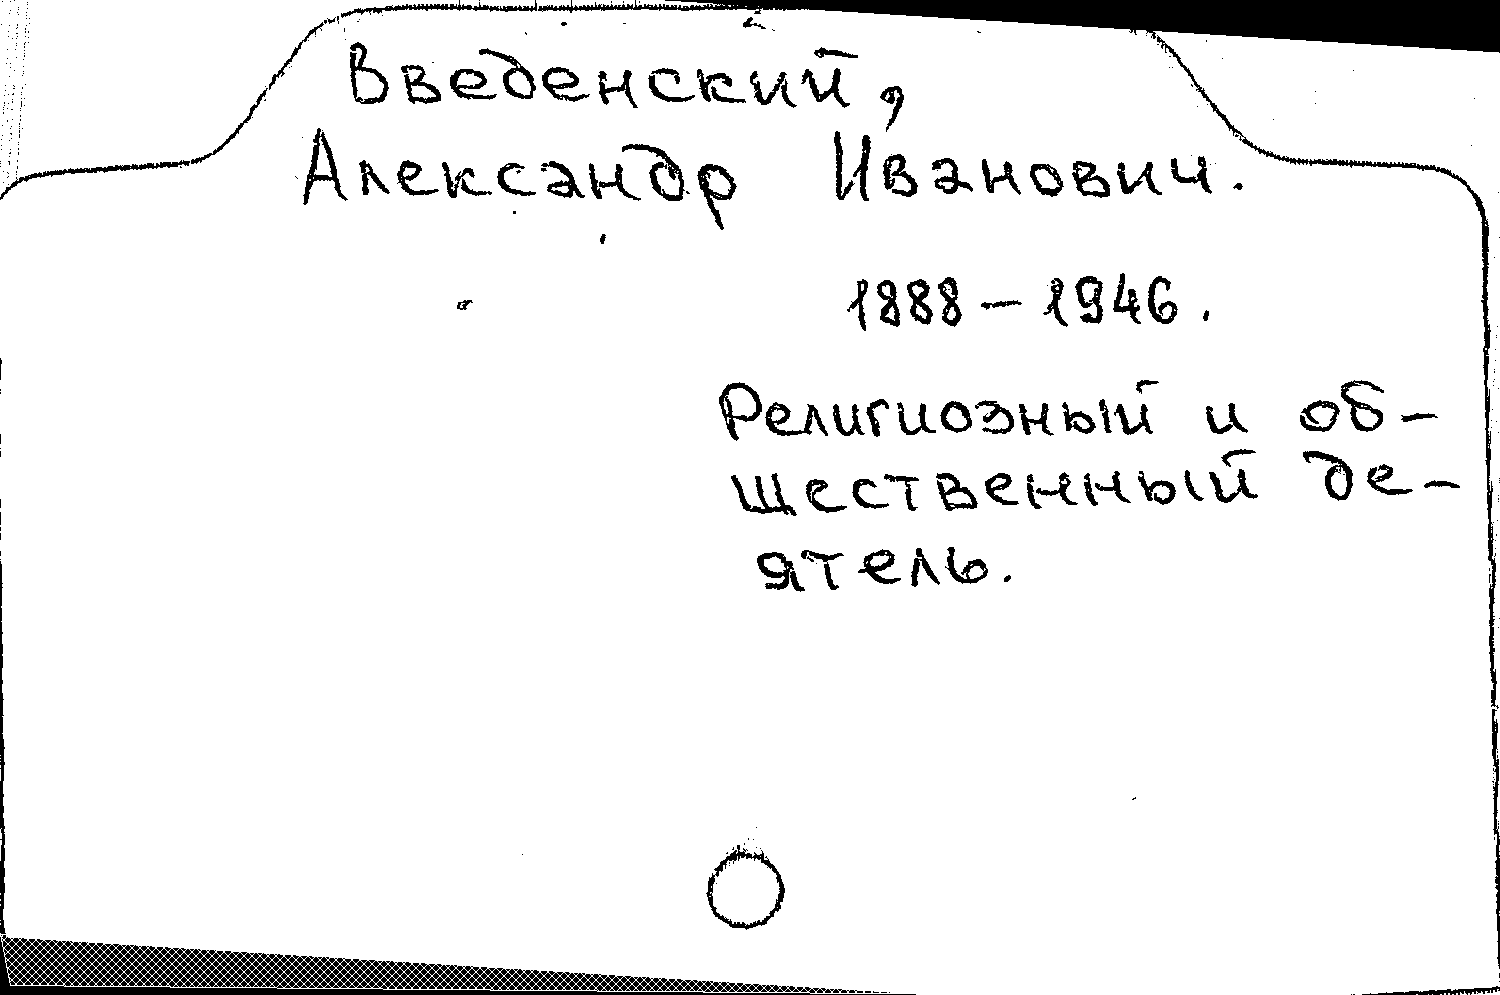 Введенский,
Александр Иванович.
1888 – 1946.
Религиозный и об-
щественный де-
ятель.